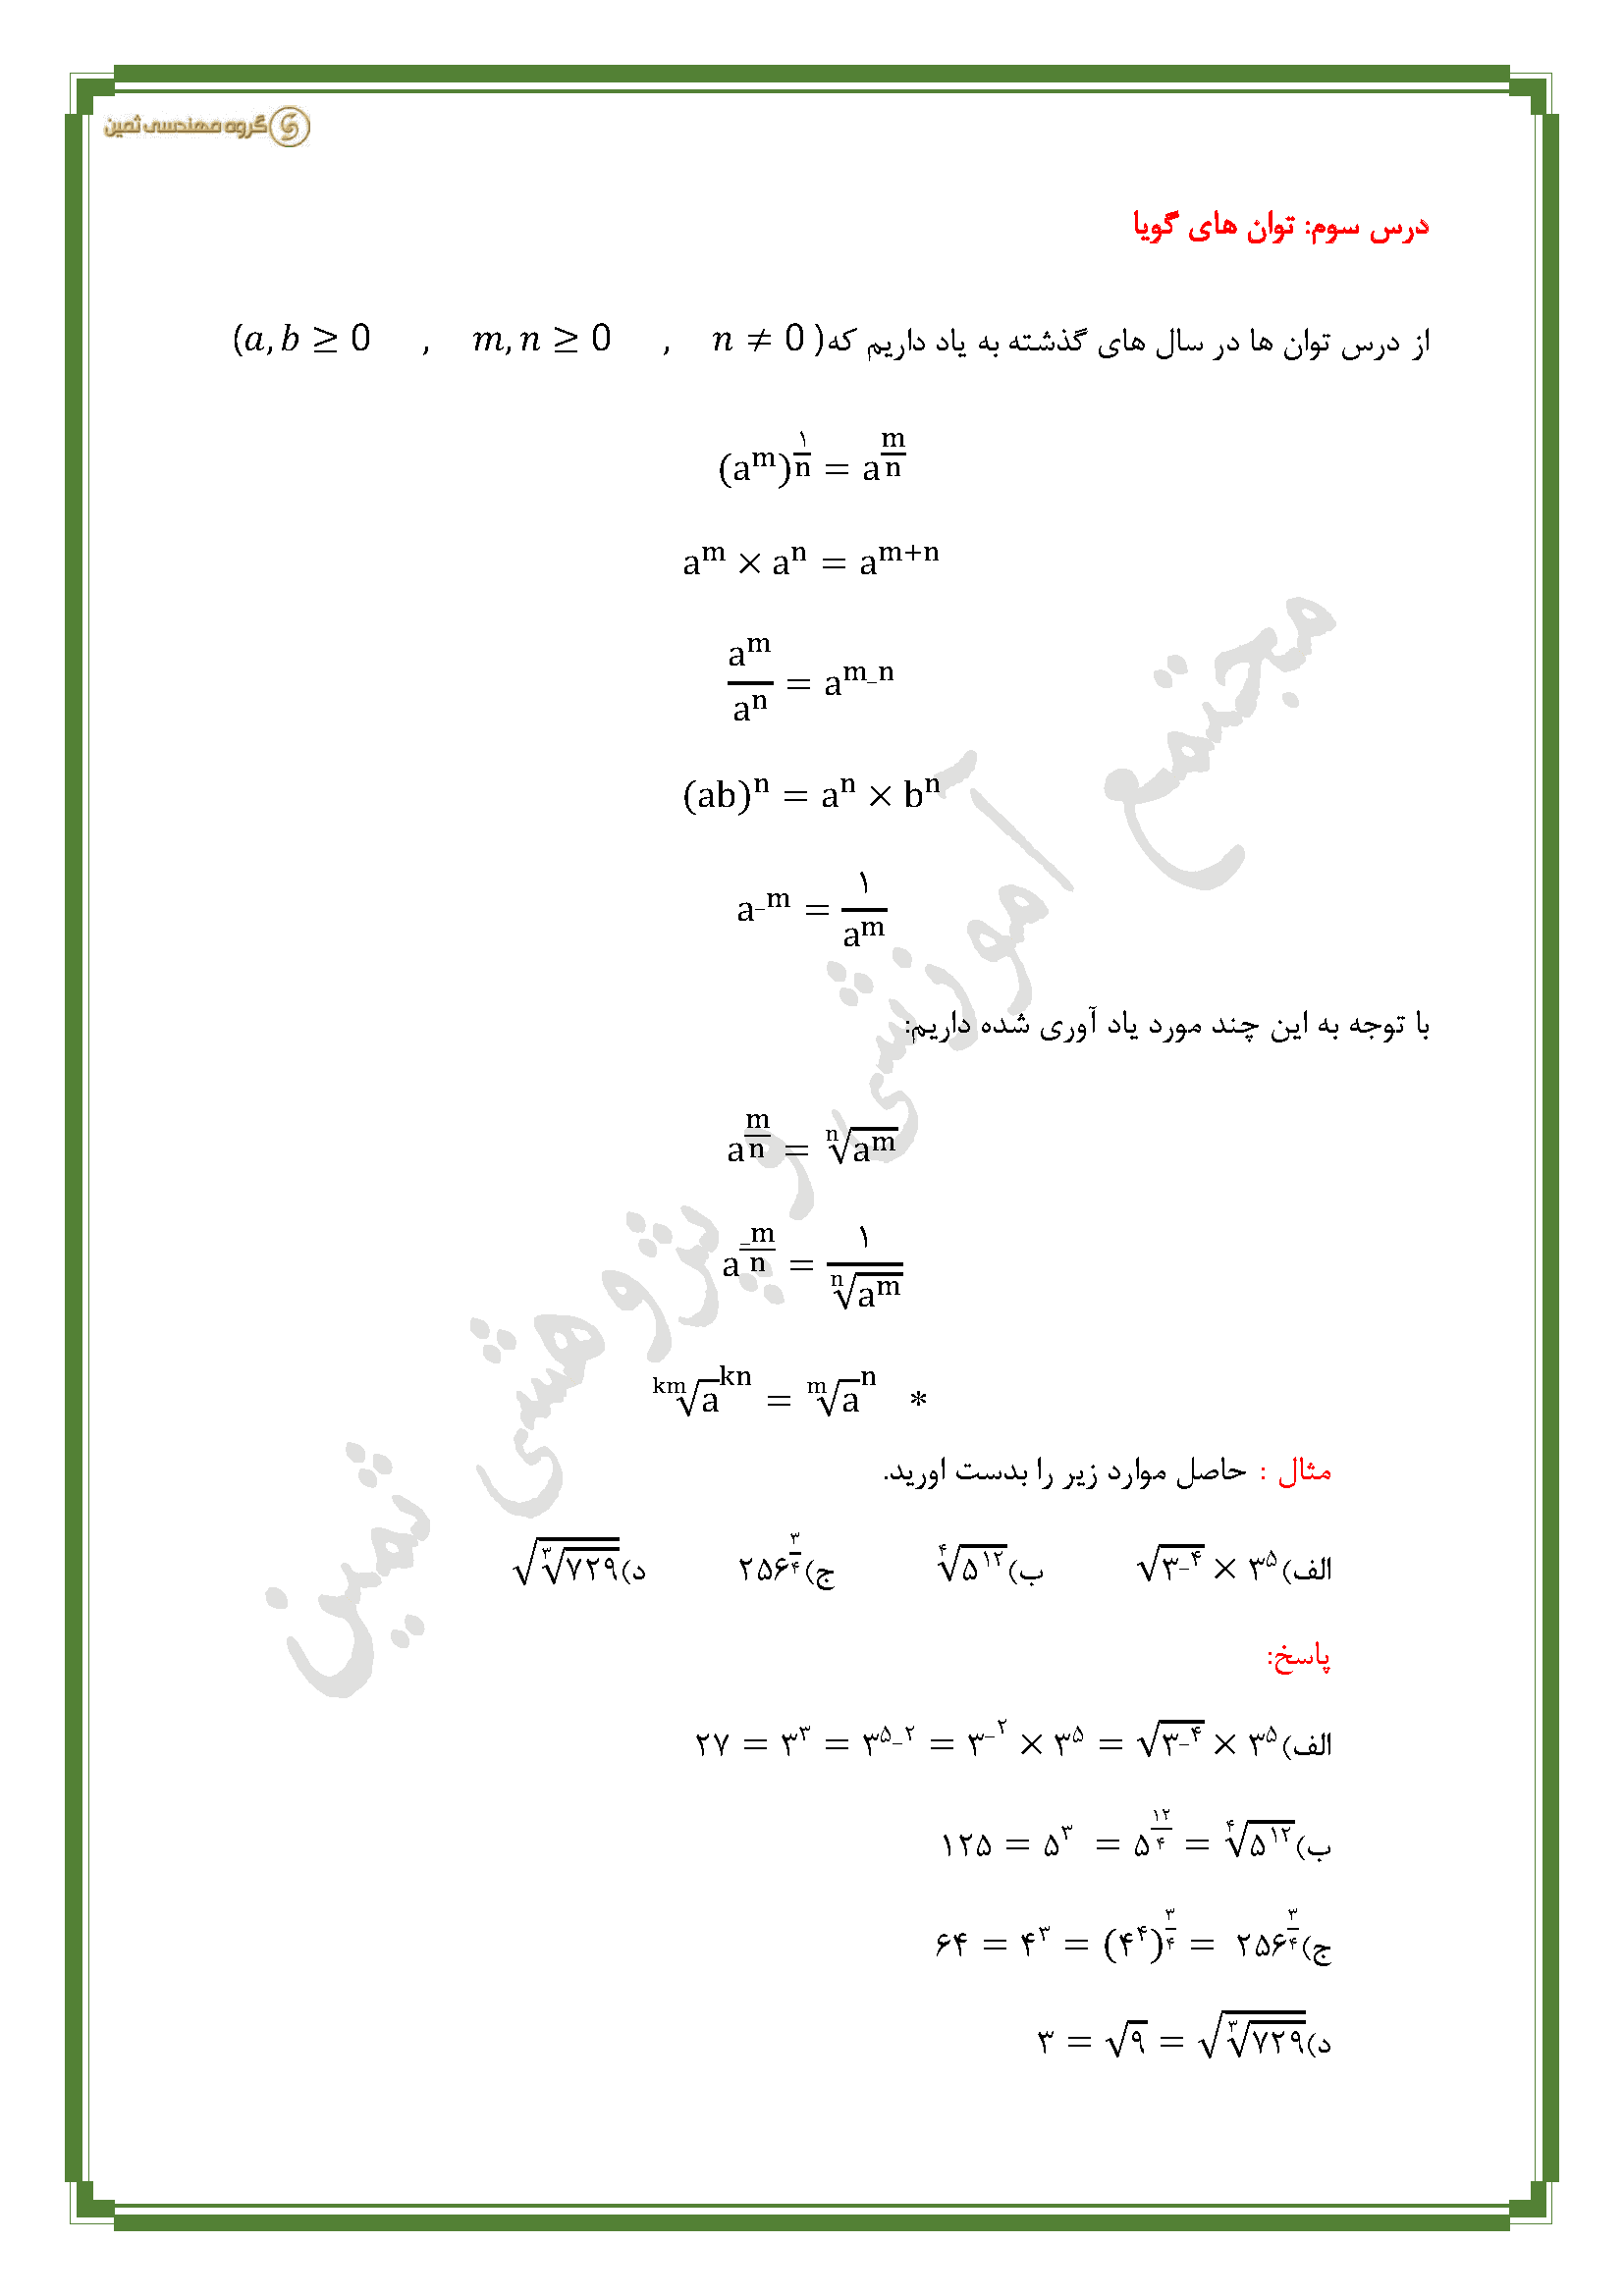 گروه مهندسی ثمین
درس سوم: توان های گویا
از درس توان ها در سال های گذشته به یاد داریم که (a, b ≥ 0 , m, n ≥ 0 , n ≠ 0)
(a^m)^(۱/n) = a^(m/n)
a^m × a^n = a^(m+n)
a^m/a^n = a^(m_n)
(ab)^n = a^n × b^n
a^(_m) = ۱/a^m
با توجه به این چند مورد یاد آوری شده داریم:
a^(m/n) = ⁿ√(a^m)
a^(_m/n) = ۱/ⁿ√(a^m)
ᵏᵐ√a^(kn) = ᵐ√a^n *
مثال : حاصل موارد زیر را بدست اورید.
الف) √(۳^(_۴)) × ۳^۵ ب) ۴√(۵^۱۲) ج) ۲۵۶^(۳/۴) د) √(۳√۷۲۹)
پاسخ:
الف) ۲۷ = ۳^۳ = ۳^(۵_۲) = ۳^(_۲) × ۳^۵ = √(۳^(_۴)) × ۳^۵
ب) ۱۲۵ = ۵^۳ = ۵^(۱۲/۴) = ۴√(۵^۱۲)
ج) ۶۴ = ۴^۳ = (۴^۴)^(۳/۴) = ۲۵۶^(۳/۴)
د) ۳ = √۹ = √(۳√۷۲۹)
مجتمع آموزشی و پژوهشی ثمین